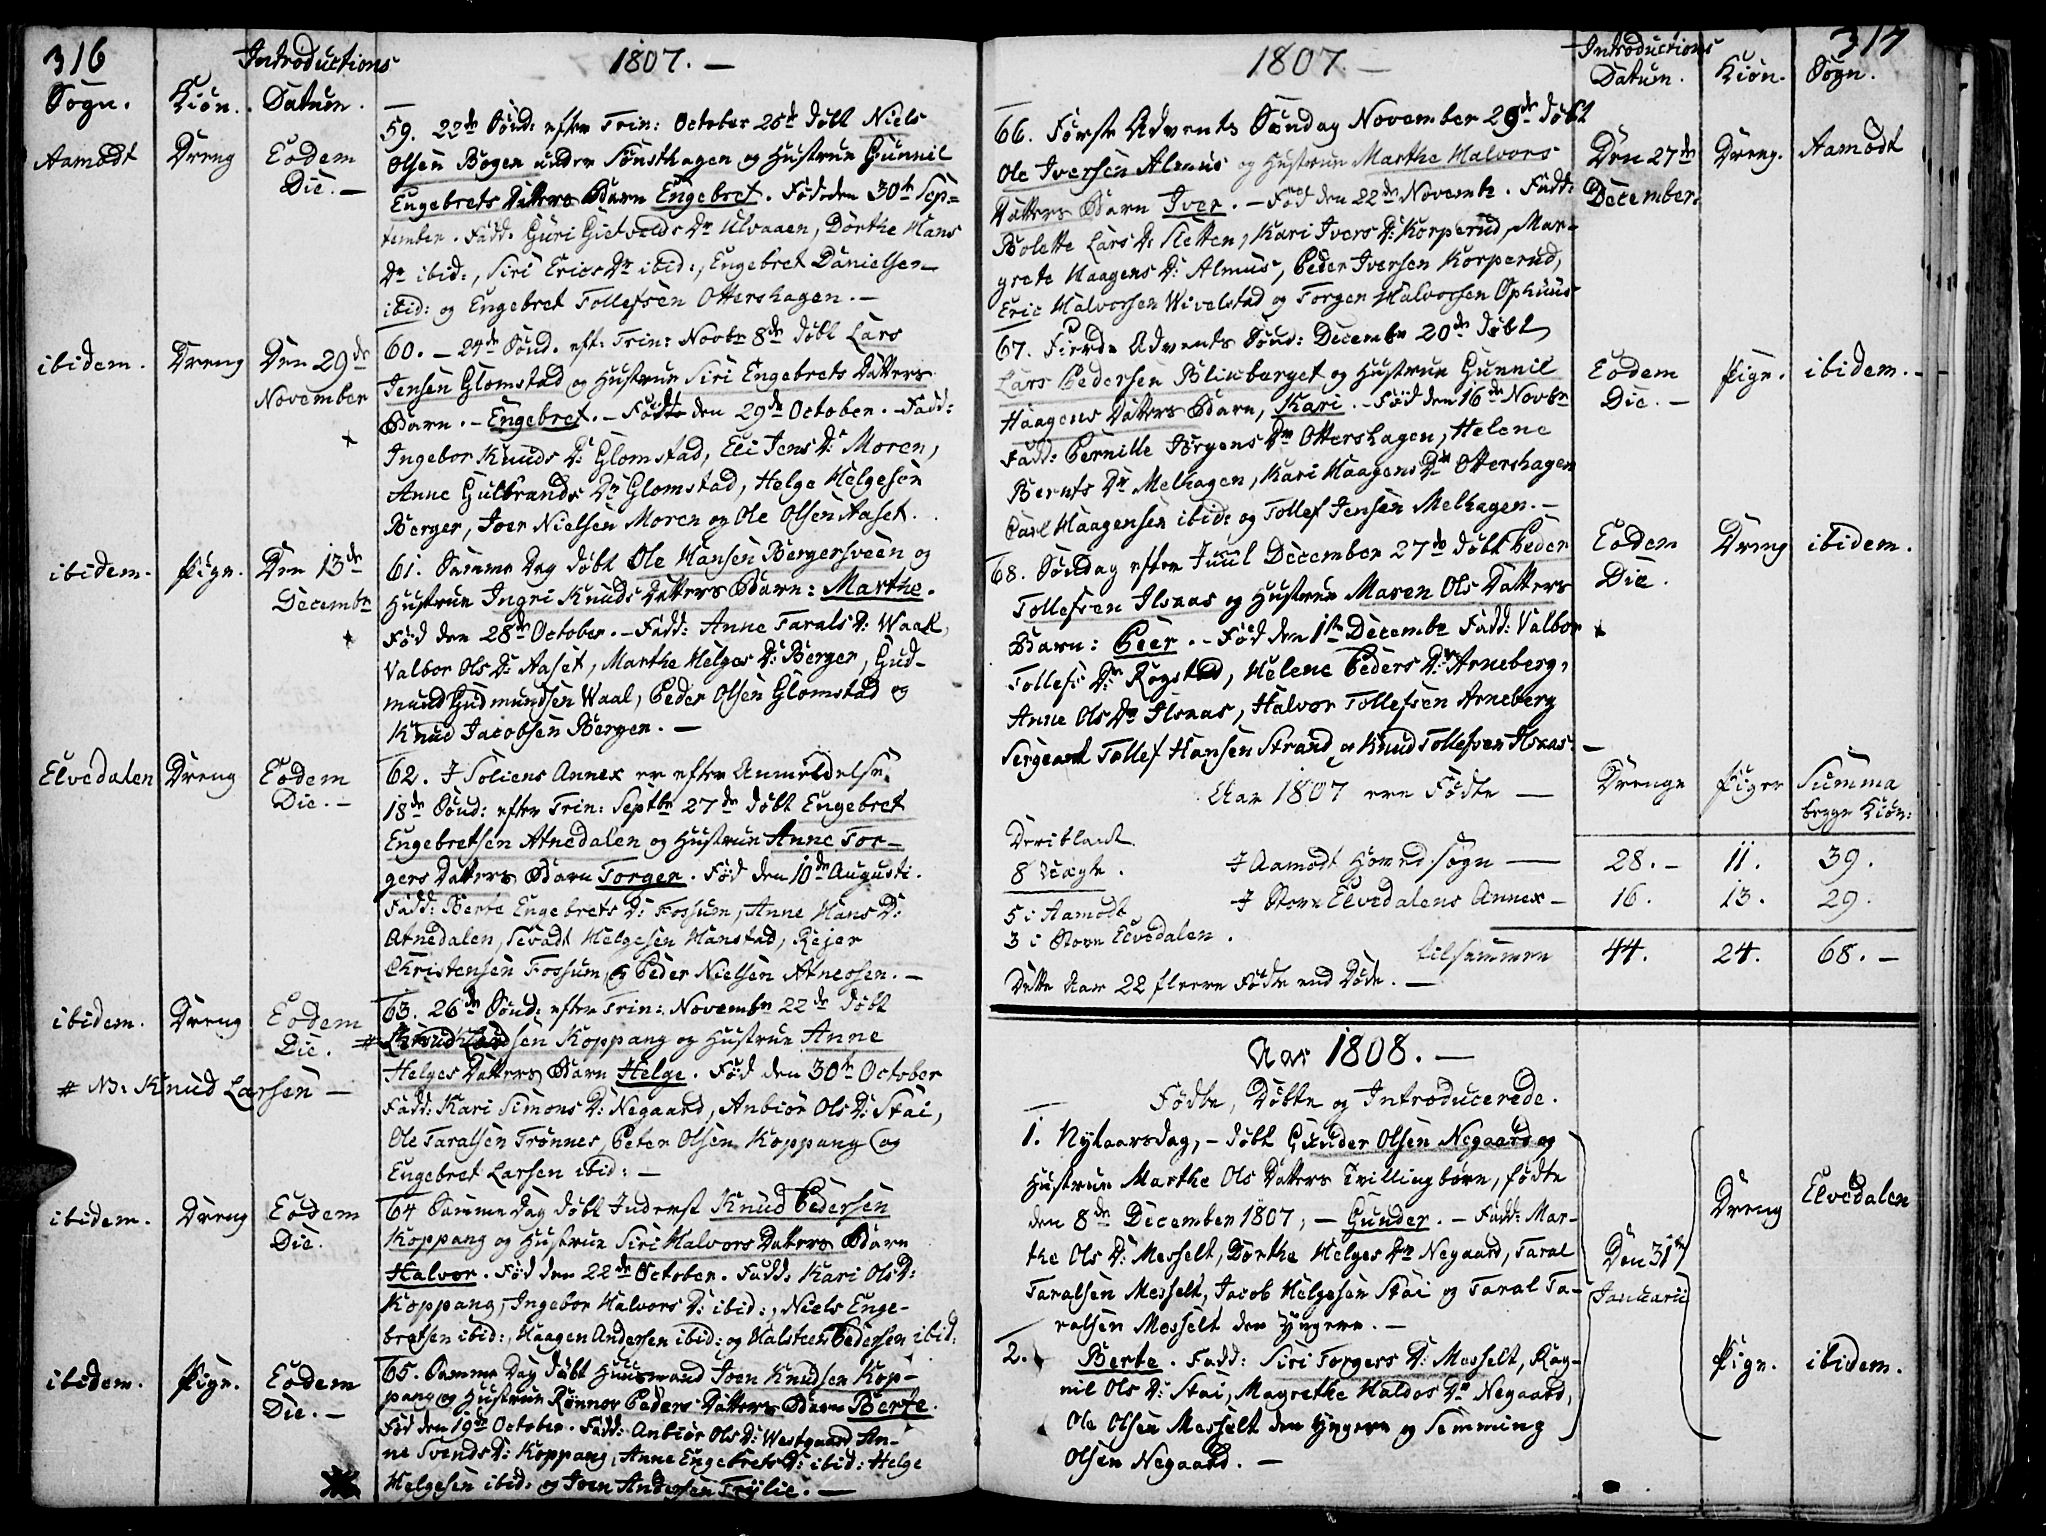 316
Introductions
1807. —
Sogn.
Kiøn.
Datum.
Aamodt
Dreng
Eodem
Die. —
59. 22de Sønd: efter Trin: October 25de døbt Niels
Olsen Bogen under Sønsthagen og Hustrue Gunnil
Engebrets Datters Barn Engebret. Fød den 30te Sep=
tember. Fadd. Guri Gietvolds Dr Ulvaaen, Dorthe Hans
Dr ibid:, Siri Erics Dr ibid:, Engebret Danielsen
ibid: og Engebret Tollefsen Ottershagen. —
ibidem.
Dreng
Den 29de
November
60. — 24de Sønd. eft: Trin: Novbr 8de døbt Lars
Jensen Glomstad og Hustrue Siri Engebrets Datters
Barn. — Engebret. — Fødte den 29de October. — Fadd:
Ingebor Knuds Dr Glomstad, Eli Jens Dr Moren,
Anne Gulbrands Dr Glomstad, Helge Helgesen
Berger, Joen Nielsen Moren og Ole Olsen Aaset.
ibidem.
Pige.
Den 13de
Decembr
61. Samme Dag døbt Ole Hansen Bergersveen og
Hustrue Ingri Knuds Datters Barn: Marthe.
Fød den 28de October. — Fadd: Anne Tarals D: Waal,
Valbor Ols D: Aaset, Marthe Helges D: Berger, Gud-
mund Gudmundsen Waal, Peder Olsen Glomstad og
Knud Jacobsen Bergen. —
Elvedalen
Dreng
Eodem
Die. —
62. I Soliens Annex er efter Anmeldelse.
18de Sønd: efter Trin: Septbr 27de døbt Engebret
Engebretsen Atnedalen og Hustrue Anne Tor-
gers Datters Barn Torger. Fød den 10de Augusti.
Fadd: Berte Engebrets D: Fossum, Anne Hans D:
Atnedalen, Sevadt Helgesen Hanstad, Rejer
Christensen Fossum, og Peder Nielsen Atneosen. —
ibidem.
Dreng
Eodem
Die.
63. 26de Sønd: efter Trin: Novembr 22de døbt
# Knud Larsen Koppang og Hustrue Anne
Helges Datters Barn Helge. Fød den 30te October
# NB: Knud Larsen —
Fadd: Kari Simons D: Negaard, Anbiør Ols D: Stai,
Ole Taralsen Trønnes, Peter Olsen Koppang og
Engebret Larsen ibid: —
ibidem.
Dreng
Eodem
Die.
64 Samme Dag døbt Inderst Knud Pedersen
Koppang og Hustrue Siri Halvors Datters Barn
Halvor. Fød den 22de October. Fadd: Kari Ols D:
Koppang, Ingebor Halvors D: ibid:, Niels Enge-
bretsen ibid:, Haagen Andersen ibid: og Halsteen Pedersen ibid:
ibidem.
Pige.
Eodem
Die. —
65. Samme Dag døbt Huusmand Joen Knudsen Kop-
pang og Hustrue Rønnov Peders Datters Barn Berte.
Fød den 19de October. Fadd: Anbiør Ols D: Westgaard An-
ne Svends D: Koppang, Anne Engebrets D: ibid: Helge
Helgesen ibid: og Joen Andersen Trylie. —
1807. —
Introductions
Datum.
Kiøn.
317
Sogn.
66. Første Advents Søndag November 29de døbt
Ole Iversen Almus og Hustrue Marthe Halvors
Datters Barn Iver. — Fød den 22de Novembr. Fadd:
Bolette Lars D: Sletten, Kari Ivers D: Korperud, Mar-
grete Haagens D: Almus, Peder Iversen Korperud,
Eric Halvorsen Wivelstad og Torger Halvorsen Ophuus
Den 27de
December.
Dreng.
Aamodt
67. Fierde Advents Sønd: Decembr 20de døbt
Lars Pedersen Blikberget og Hustrue Gunnil
Haagens Datters Barn, Kari. — Fød den 16de Novbr
Fadd: Pernille Jørgens Dr Ottershagen, Helene
Bernts Dr Melhagen, Kari Haagens Dr Ottershagen
Carl Haagensen ibid: og Tollef Jensen Melhagen. —
Eodem
Die. —
Pige.
ibidem. —
68. Søndag efter Juul December 27de døbt Peder
Tollefsen Ilsaas og Hustrue Maren Ols Datters
Barn: Peer. — Fød den 1ste Decembr Fadd: Valbor
Tollefs Dr Rogstad, Helene Peders Dr Arneberg,
Anne Ols Dr Ilsaas, Halvor Tollefsen Arneberg
Sergeant Tollef Hansen Strand og Knud Tollefsen Ilsaas. —
Eodem
Die.
Dreng
ibidem.
Aar 1807 ere Fødte —
Drenge
Piger
Summa
begge Kiøn:
Deriblandt
8 Uægte.
I Aamodt Hovedsogn —
28. —
11.
39.
5 i Aamodt
I Store Elvedalens Annex —
16.
13.
29.
3 i Store Elvedalen.
tilsammen
44.
24.
68. —
Dette Aar 22 fleere Fødte end Døde. —
Aar 1808. —
Fødte, Døbte og Introducerede.
1. Nytaarsdag, — døbt Gunder Olsen Negaard og
Hustrue Marthe Ols Datters Tvillingbørn, fødte
den 8de December 1807, — Gunder. — Fadd: Mar-
the Ols D: Messelt, Dorthe Helges Dr Negaard, Taral
Taralsen Messelt, Jacob Helgesen Stai og Taral Ta-
ralsen Messelt den Yngere. —
Den 31te
Januarii
Dreng
Elvedalen
2. Berte. Fadd: Siri Torgers D: Messelt, Rag-
nil Ols D: Stai, Magrethe Haldos Dr Negaard,
Ole Olsen Messelt den Yngere og Semming
Olsen Negaard. —
Pige.
ibidem.